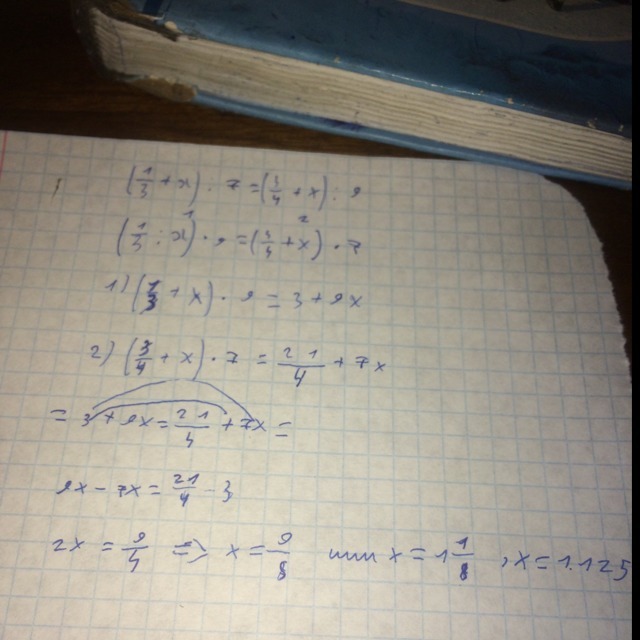 (1/3 + x) : 7 = (3/4 + x) : 9
(1/3 + x)¹ · 9 = (3/4 + x)² · 7
1) (1/3 + x) · 9 = 3 + 9x
2) (3/4 + x) · 7 = 21/4 + 7x
= 3 + 9x = 21/4 + 7x =
9x - 7x = 21/4 - 3
2x = 9/4 => x = 9/8 или x = 1 1/8 , x = 1.125